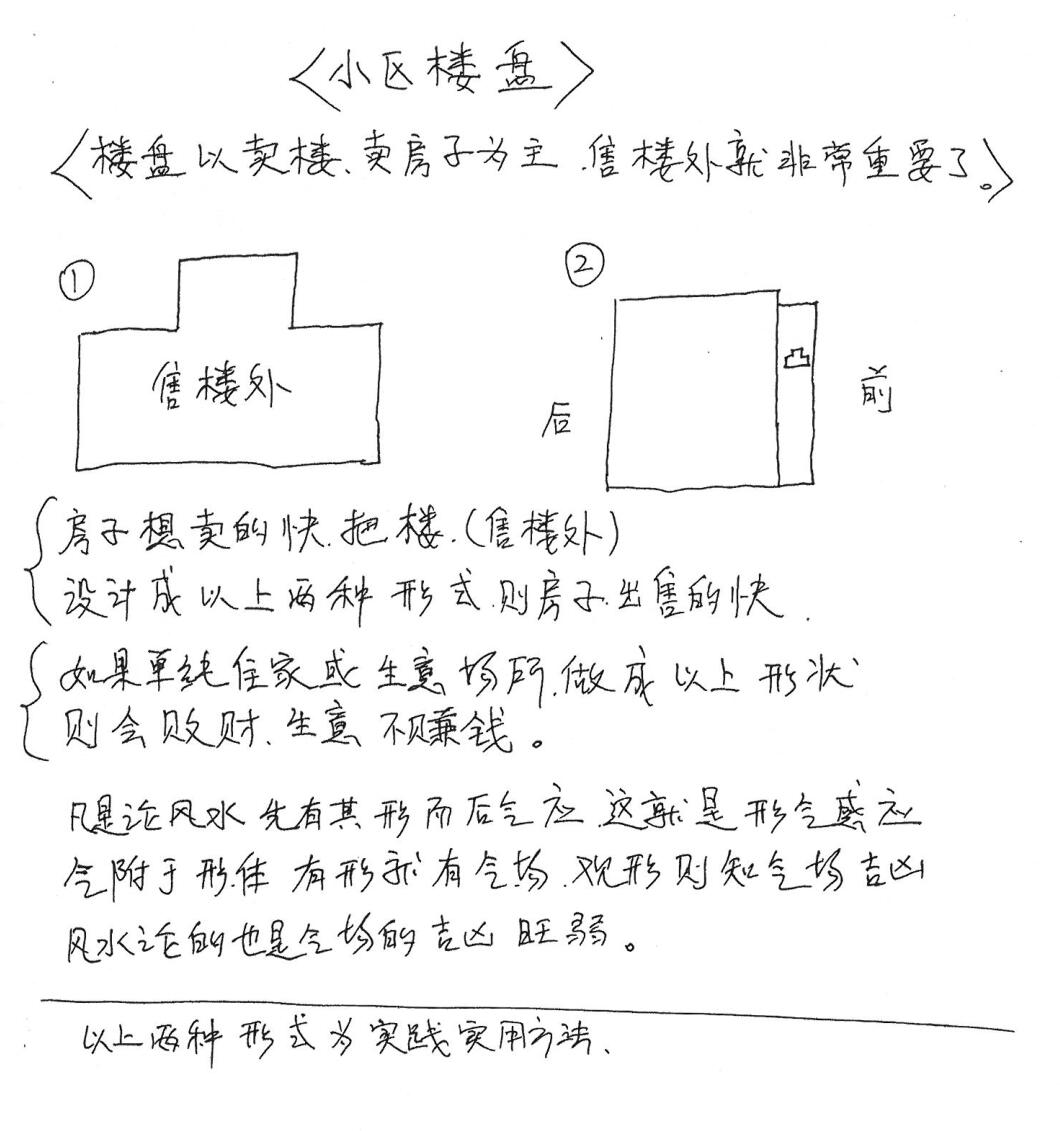 〈小区楼盘〉
〈楼盘以卖楼、卖房子为主.售楼外就非常重要了。〉
①
②
售楼外
后
前
房子想卖的快.把楼.(售楼外)
设计成以上两种形式.则房子出售的快.
如果单纯住家或生意场所.做成以上形状
则会败财、生意不赚钱。
凡是论风水先有其形而后气应.这就是形气感应
气附于形体 有形就有气场.观形则知气场吉凶
风水论的也是气场的吉凶旺弱。
以上两种形式为实践实用方法、